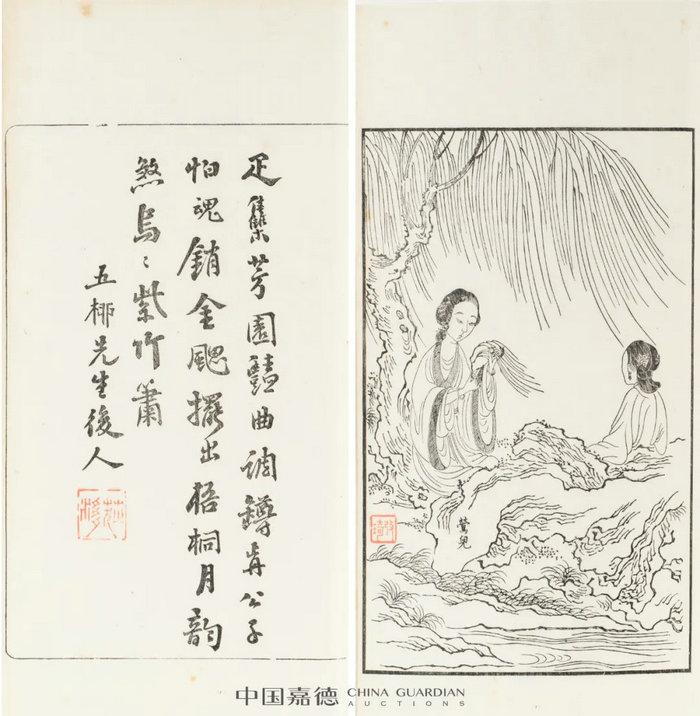 集芳園豔曲調鐏歬公子
怕魂銷金颸擺出梧桐月韵
煞烏〻紫竹簫
五桺先生後人
鶯兒
改琦
中国嘉德 CHINA GUARDIAN
AUCTIONS